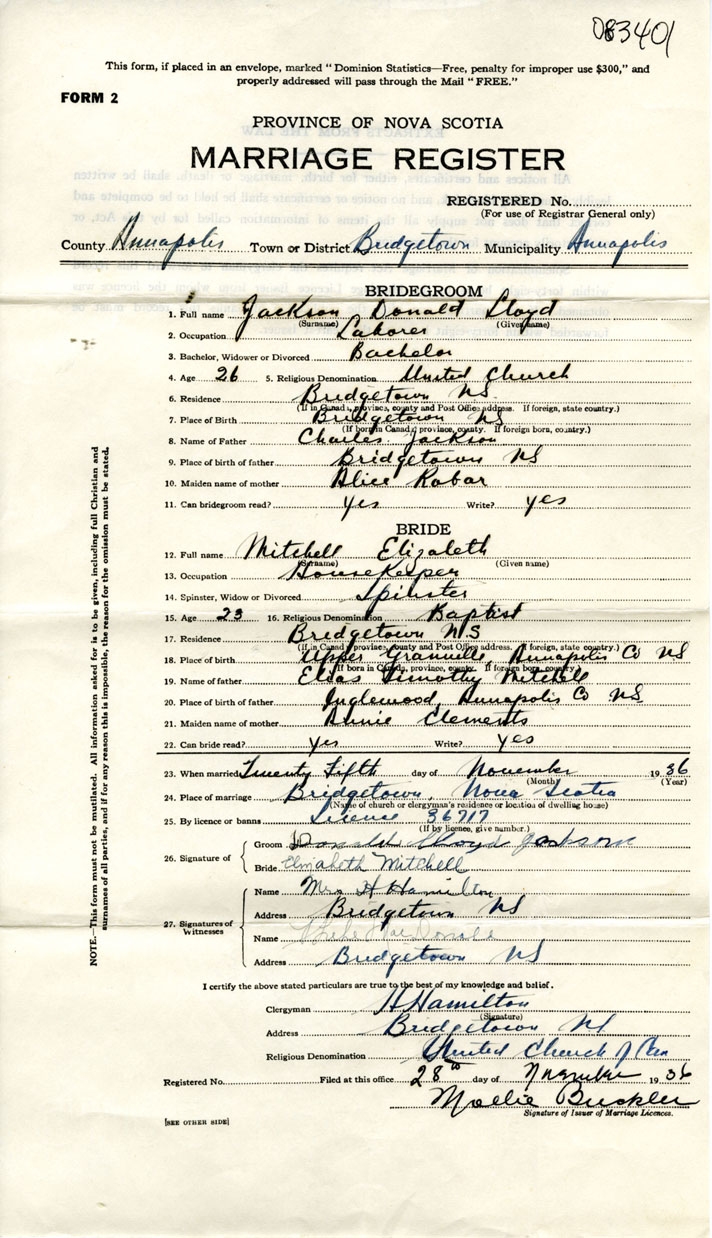 083401
This form, if placed in an envelope, marked "Dominion Statistics—Free, penalty for improper use $300," and
properly addressed will pass through the Mail "FREE."
FORM 2
PROVINCE OF NOVA SCOTIA
MARRIAGE REGISTER
REGISTERED No.
(For use of Registrar General only)
County Annapolis Town or District Bridgetown Municipality Annapolis
BRIDEGROOM
1. Full name Jackson Donald Lloyd
(Surname) (Given name)
2. Occupation Laborer
3. Bachelor, Widower or Divorced Bachelor
4. Age 26 5. Religious Denomination United Church
6. Residence Bridgetown NS
(If in Canada, province, county and Post Office address. If foreign, state country.)
7. Place of Birth Bridgetown NS
(If born in Canada, province, county. If foreign born, country.)
8. Name of Father Charles Jackson
9. Place of birth of father Bridgetown NS
10. Maiden name of mother Alice Robar
11. Can bridegroom read? Yes Write? Yes
BRIDE
12. Full name Mitchell Elizabeth
(Surname) (Given name)
13. Occupation Housekeeper
14. Spinster, Widow or Divorced Spinster
15. Age 23 16. Religious Denomination Baptist
17. Residence Bridgetown N.S
(If in Canada, province, county and Post Office address. If foreign, state country.)
18. Place of birth Upper Granville Annapolis Co NS
(If born in Canada, province, county. If foreign born, country.)
19. Name of father Elias Timothy Mitchell
20. Place of birth of father Inglewood, Annapolis Co NS
21. Maiden name of mother Annie Clements
22. Can bride read? Yes Write? Yes
23. When married Twenty Fifth day of November 1936
(Month) (Year)
24. Place of marriage Bridgetown, Nova Scotia
(Name of church or clergyman's residence or location of dwelling house)
25. By licence or banns Licence 36717
(If by licence, give number.)
26. Signature of
Groom Donald Lloyd Jackson
Bride Elizabeth Mitchell
27. Signatures of Witnesses
Name Mrs H Hamilton
Address Bridgetown NS
Name MacDonald
Address Bridgetown NS
I certify the above stated particulars are true to the best of my knowledge and belief.
Clergyman H Hamilton
(Signature)
Address Bridgetown NS
Religious Denomination United Church of Can
Registered No. Filed at this office 28th day of November 1936
Mollie Buckler
Signature of Issuer of Marriage Licences.
[SEE OTHER SIDE]
NOTE.—This form must not be mutilated. All information asked for is to be given, including full Christian and
surnames of all parties, and if for any reason this is impossible, the reason for the omission must be stated.